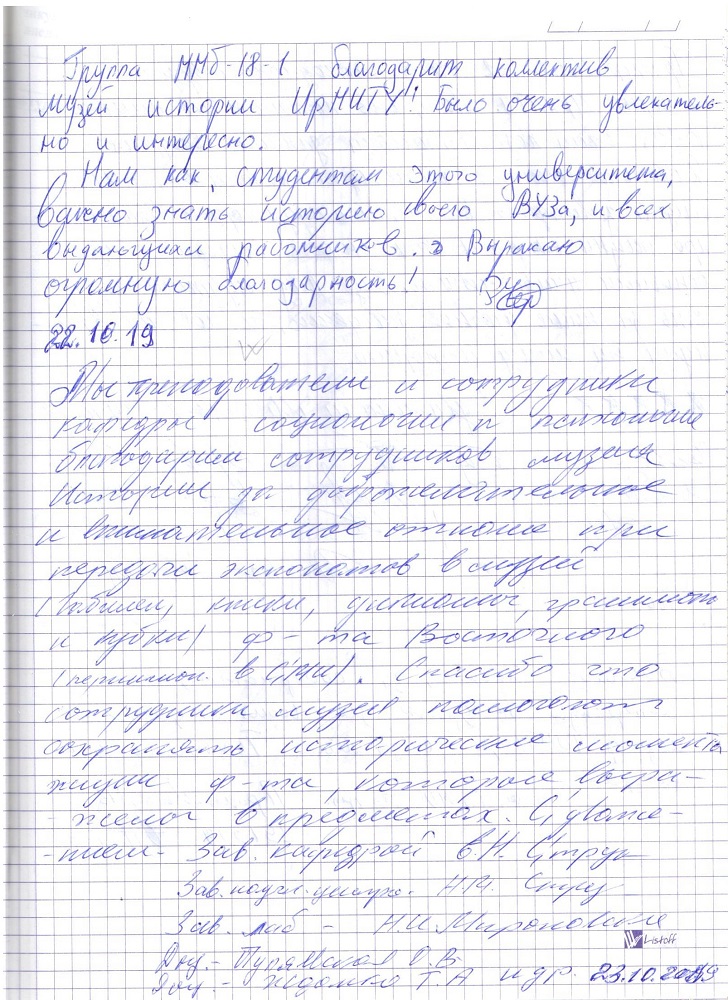 Группа ННб-18-1 благодарит коллектив
музей истории ИрНИТУ! Было очень увлекатель-
но и интересно.
Нам как, студентам этого университета,
важно знать историю своего ВУЗа, и всех
выдающихся работников. Выражаю
огромную благодарность!
22.10.19
Мы преподаватели и сотрудники
кафедры социологии и психологии
благодарим сотрудников музея
Истории за доброжелательное
и внимательное отноше при
передачи экспонатов в музей
книги, дипломы, грамоты
и кубки) ф-та Восточного
в Спасибо что
сотрудники музея помогают
сохранять исторические моменты
жизни ф-та, которые выра-
жены в предметах. С уваже-
-нием. Зав. кафедрой В.Н. Струк
Зав. научн.
Зав. лаб - Н.И.
Доц. - О.В.
Доц. - Т.А и др. 23.10.2019
Listoff